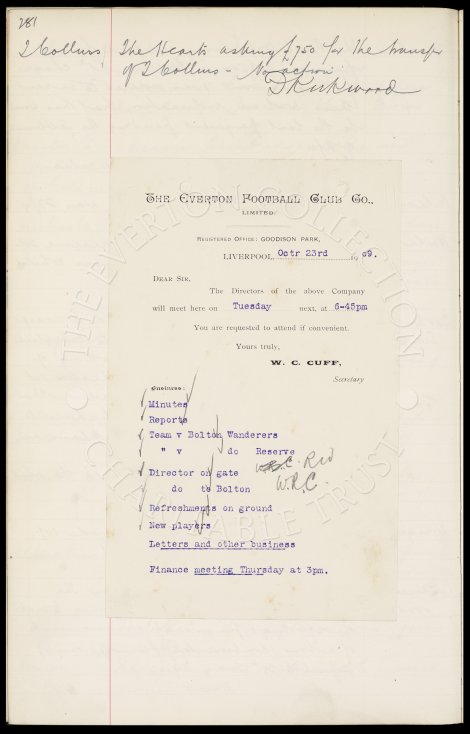 281
T Collins, The Hearts asking £750 for the transfer
of T Collins - No action
D Kirkwood
THE EVERTON FOOTBALL CLUB CO.,
LIMITED.
REGISTERED OFFICE: GOODISON PARK,
LIVERPOOL, Octr 23rd 1909.
DEAR SIR,
The Directors of the above Company
will meet here on Tuesday next, at 6-45pm
You are requested to attend if convenient.
Yours truly,
W. C. CUFF,
Secretary
Business:
Minutes
Reports
Team v Bolton Wanderers
" v do Reserve
Director on gate
W.R.C.
do to Bolton
Refreshments on ground
New players
Letters and other business
Finance meeting Thursday at 3pm.
THE EVERTON COLLECTION
CHARITABLE TRUST